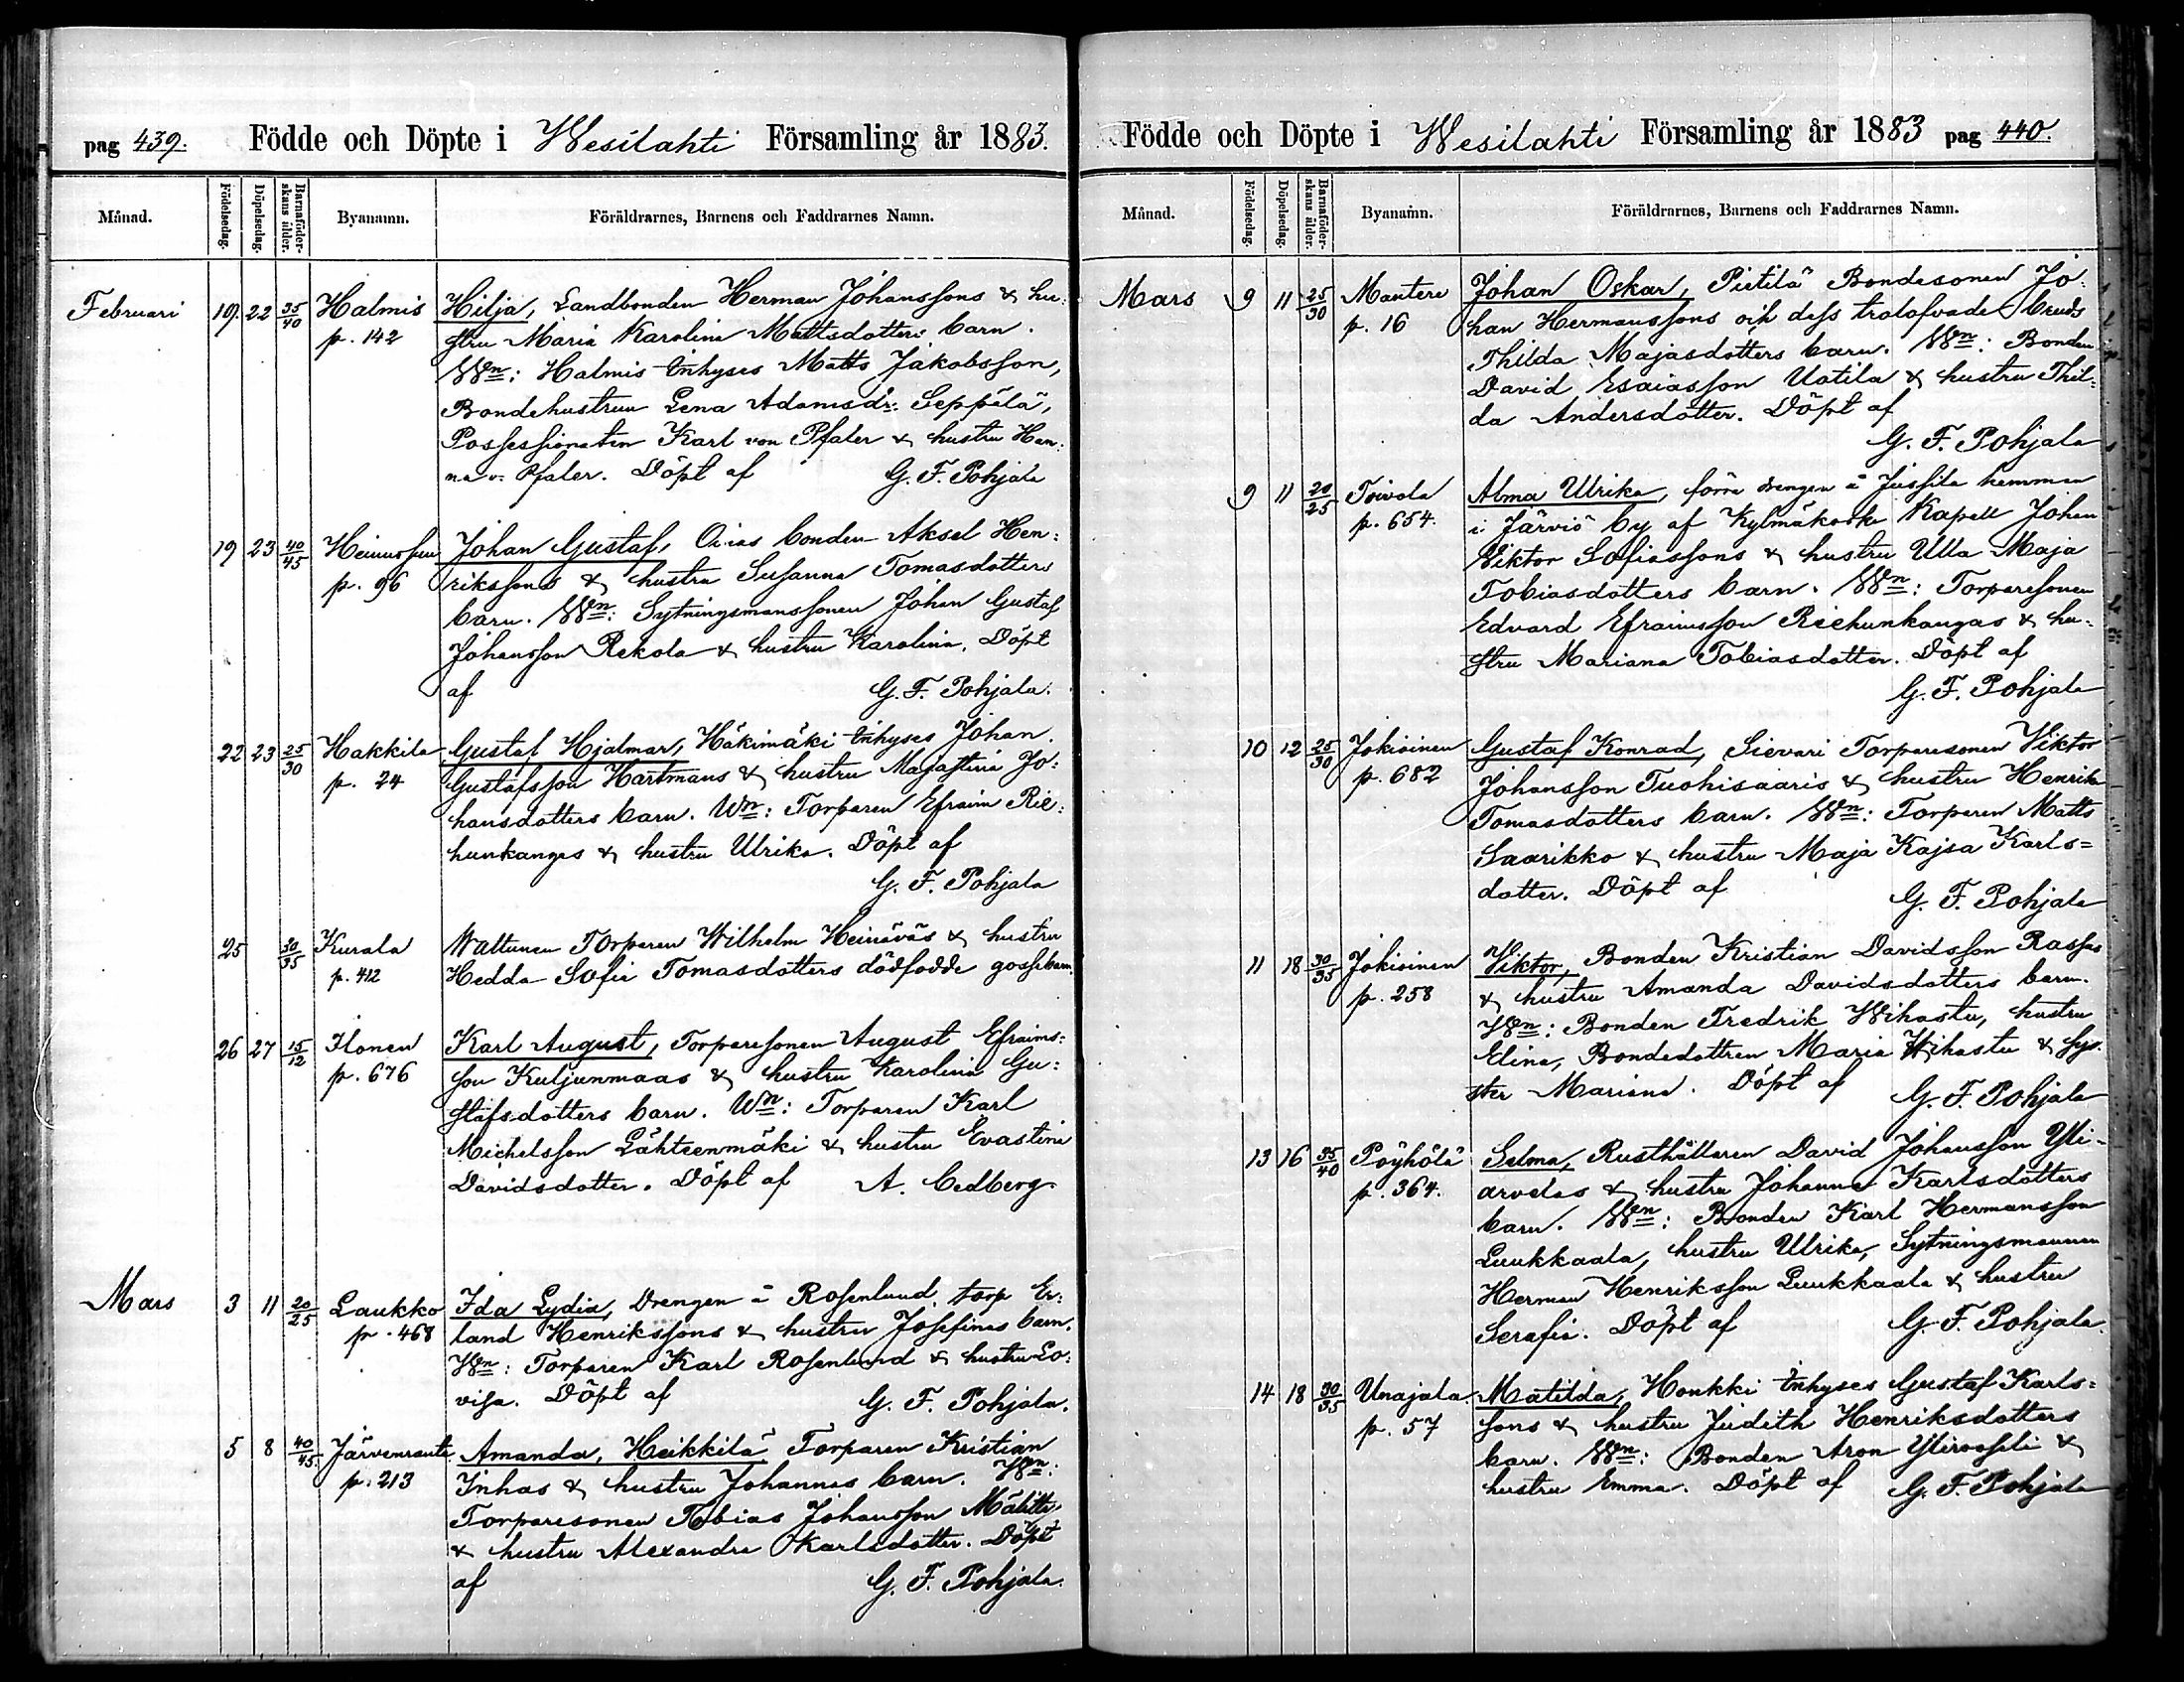 pag 439. Födde och Döpte i Wesilahti Församling år 1883.
Månad. Födelsedag. Döpelsedag. Barnaföderskans ålder. Byanamn. Föräldrarnes, Barnens och Faddrarnes Namn.
Februari 19. 22 35/40 Halmis Hilja, Landbonden Herman Johanssons & hu-
p. 142 stru Maria Karolina Mattsdotters barn.
Wn: Halmis Inhyses Matts Jakobsson,
Bondehustrun Lena Adamsdr. Seppälä,
Possessionaten Karl von Pfaler & hustru Han-
na v. Pfaler. Döpt af G. F. Pohjala
19 23 40/45 Johan Gustaf, bonden Aksel Hen-
p. 96 rikssons & hustru Susanna Tomasdotters
barn. Wn: Sytningsmanssonen Johan Gustaf
Johansson Rekola & hustru Karolina. Döpt
af G. F. Pohjala.
22 23 25/30 Hakkila Gustaf Hjalmar, Häkimäki Inhyses Johan
p. 24 Gustafsson Hartmans & hustru Majastina Jo-
hansdotters barn. Wn: Torparen Efraim Rie-
hunkangas & hustru Ulrika. Döpt af
G. F. Pohjala
25 30/35 Kurala Torparen Wilhelm Heinäväs & hustru
p. 412 Hedda Sofia Tomasdotters dödfödde gossebarn.
26 27 15/12 Ilonen Karl August, Torparesonen August Efraims-
p. 676 son Kuljunmaas & hustru Karolina Gu-
stafsdotters barn. Wn: Torparen Karl
Michelsson Lähteenmäki & hustru Evastina
Davidsdotter. Döpt af A. Cedberg
Mars 3 11 20/25 Laukko Ida Lydia, Drengen å Rosenlund torp Er-
p. 468 land Henrikssons & hustru Josefinas barn.
Wn: Torparen Karl Rosenlund & hustru Lo-
visa. Döpt af G. F. Pohjala.
5 8 40/45. Järvenranta Amanda, Heikkilä Torparen Kristian
p. 213 Inhas & hustru Johannas barn. Wn:
Torparesonen Tobias Johansson
& hustru Alexandra Karlsdotter. Döpt
af G. F. Pohjala.
Födde och Döpte i Wesilahti Församling år 1883 pag 440.
Månad. Födelsedag. Döpelsedag. Barnaföderskans ålder. Byanamn. Föräldrarnes, Barnens och Faddrarnes Namn.
Mars 9 11 25/30 Mantere Johan Oskar, Pietilä Bondesonen Jo-
p. 16 han Hermanssons och dess trolofvade bruds
Thilda Majasdotters barn. Wn: Bonden
David Esaiasson Uotila & hustru Thil-
da Andersdotter. Döpt af
G. F. Pohjala
9 11 20/25 Toivola Alma Ulrika, förra drengen å Jussila hemman
p. 654. i Järviö by af Kylmäkoski Kapell Johan
Viktor Sofiassons & hustru Ulla Maja
Tobiasdotters barn. Wn: Torparesonen
Edvard Efraimsson Riehunkangas & hu-
stru Mariana Tobiasdotter. Döpt af
G. F. Pohjala
10 12 25/30 Jokioinen Gustaf Konrad, Sievari Torparesonen Viktor
p. 682 Johansson Tuohisaaris & hustru Henrika
Tomasdotters barn. Wn: Torparen Matts
Saarikko & hustru Maja Kajsa Karls=
dotter. Döpt af G. F. Pohjala
11 18 30/35 Jokioinen Viktor, Bonden Kristian Davidsson Rassas
p. 258 & hustru Amanda Davidsdotters barn.
Wn: Bonden Fredrik Wihastu, hustru
Elina, Bondedottren Maria Wihastu & sys-
ter Mariana. Döpt af G. F. Pohjala
13 16 35/40 Pöyhölä Selma, Rusthållaren David Johansson Yli-
p. 364. arvelas & hustru Johanna Karlsdotters
barn. Wn: Bonden Karl Hermansson
Luukkaala, hustru Ulrika, Sytningsmannen
Herman Henriksson Luukkaala & hustru
Serafia. Döpt af G. F. Pohjala.
14 18 30/35 Unajala. Matilda, Honkki Inhyses Gustaf Karls-
p. 57 sons & hustru Judith Henriksdotters
barn. Wn: Bonden Aron &
hustru Emma. Döpt af G. F. Pohjala